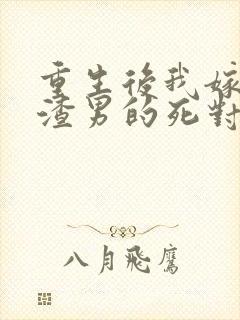 重生後我嫁
渣男的死對
八月飛鷹